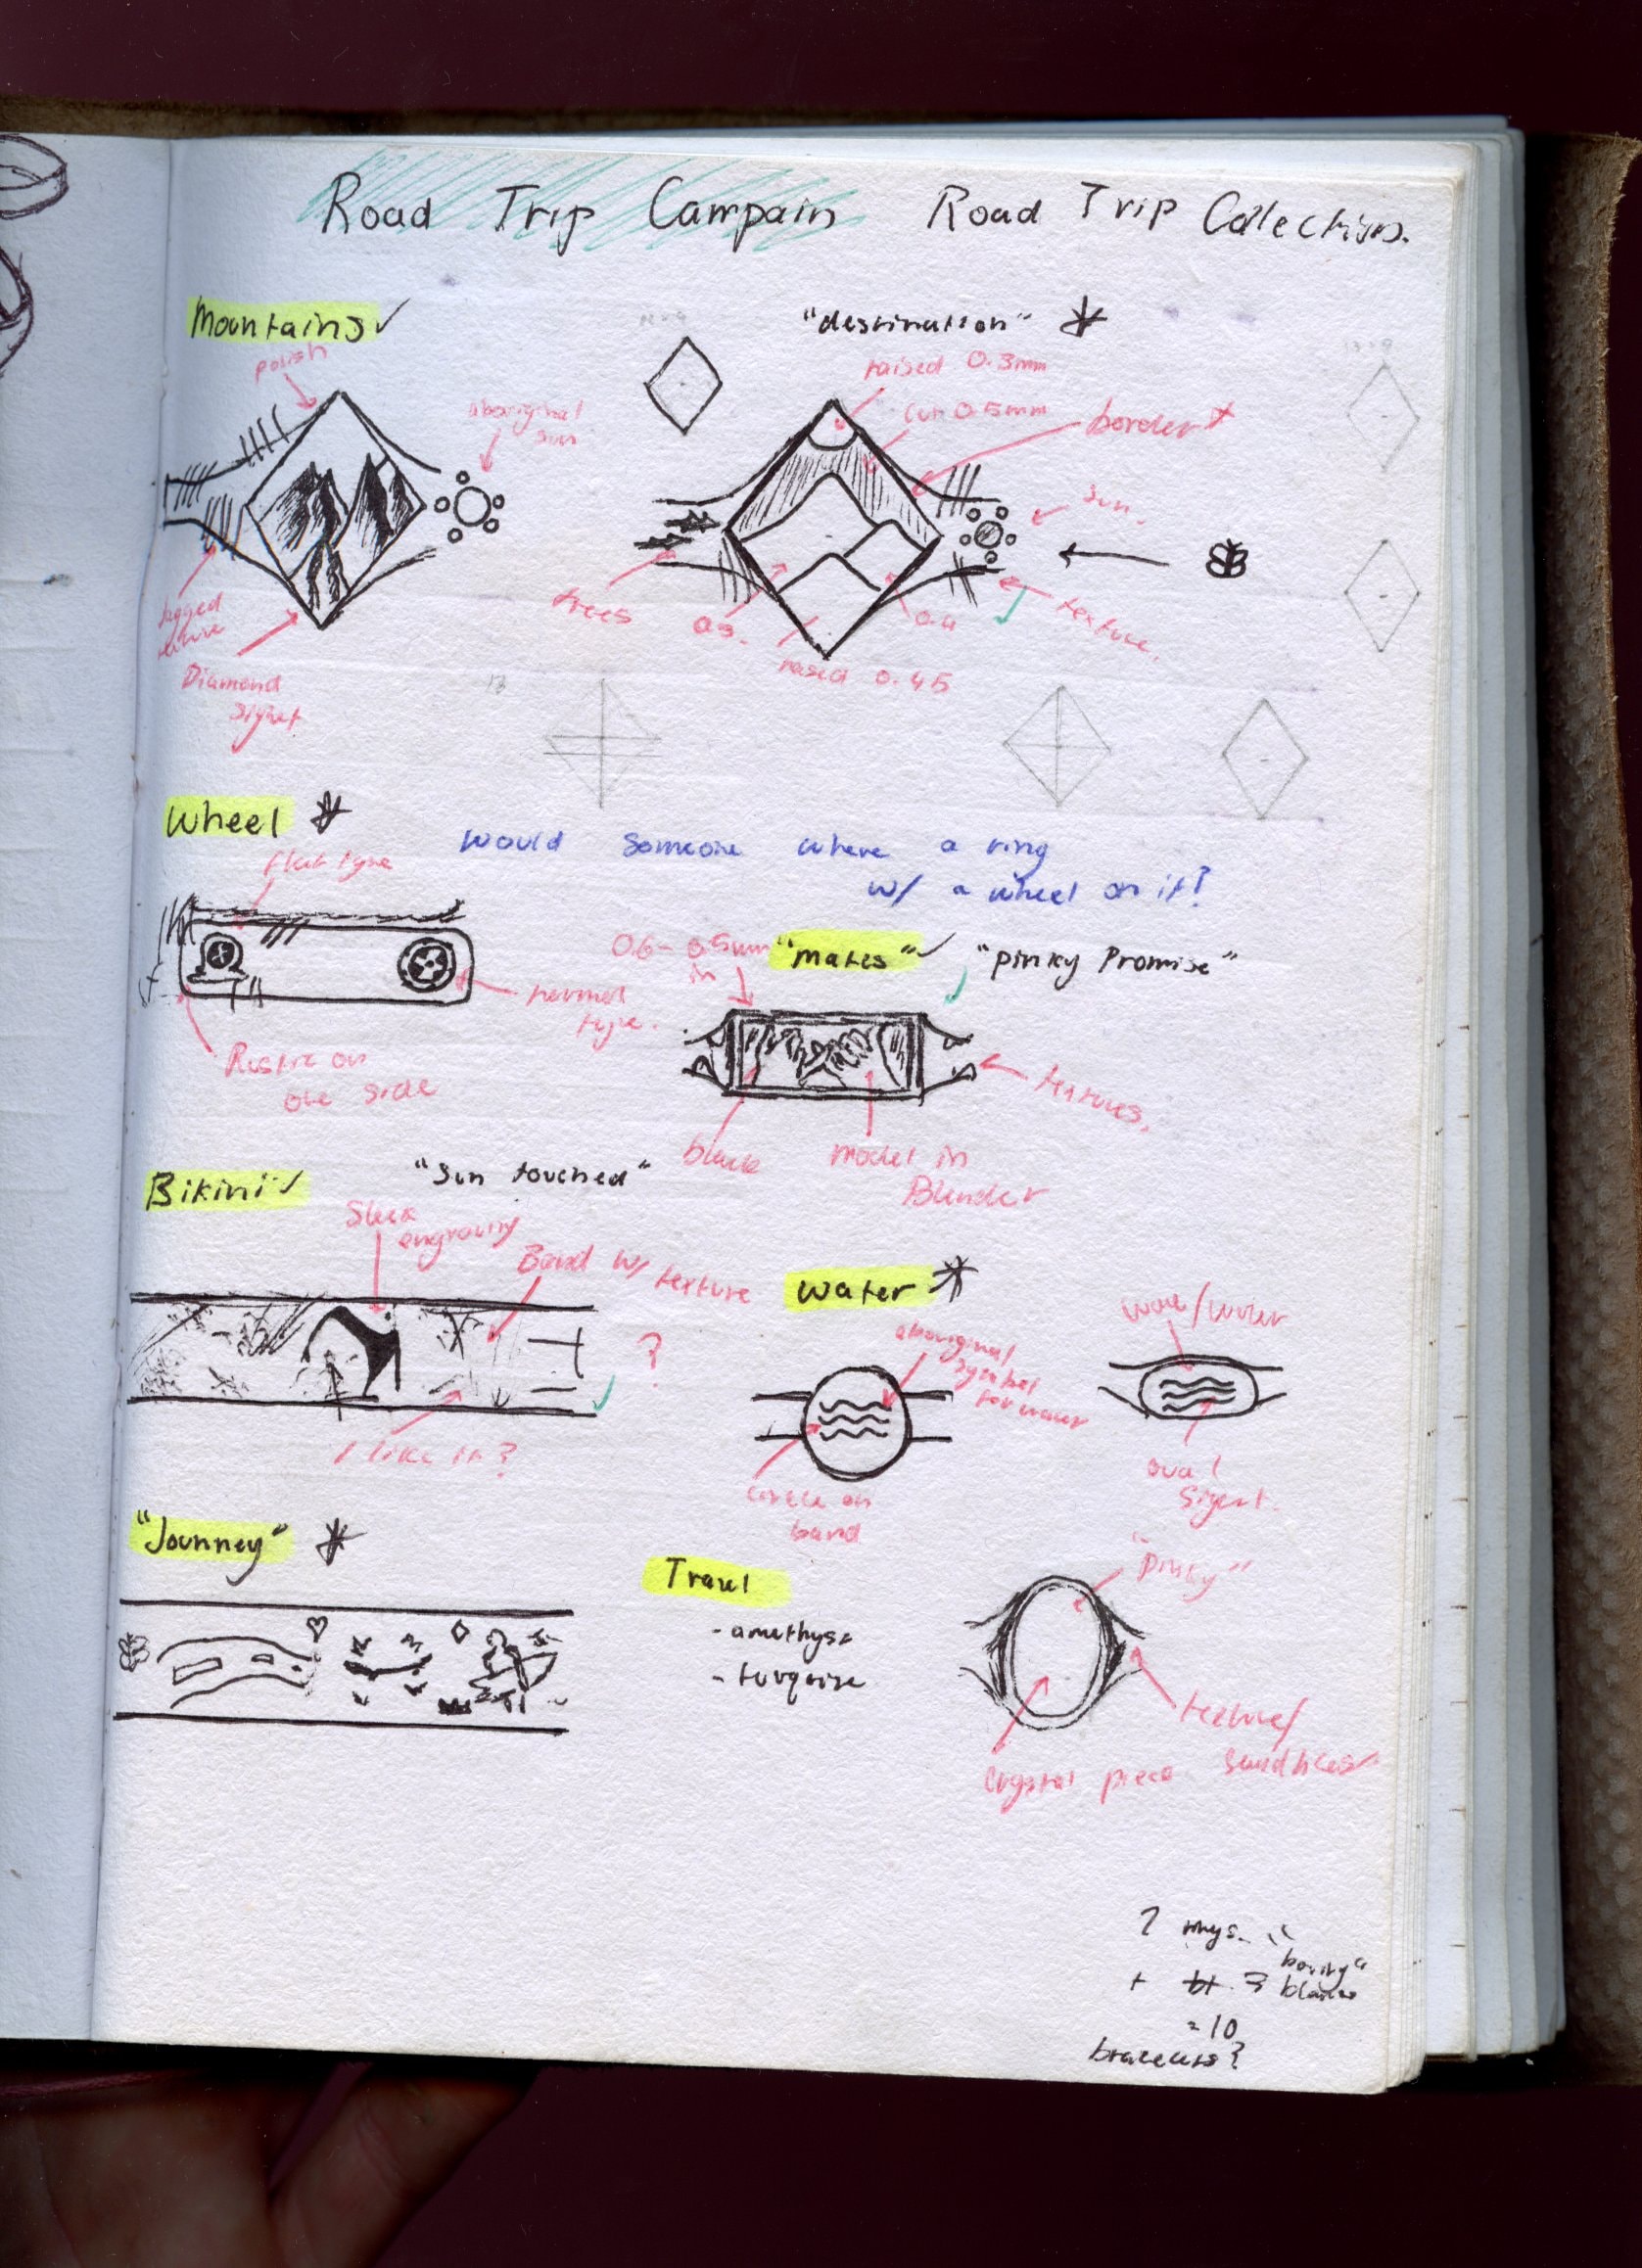 Road Trip Campain Road Trip Collection.
Mountains ✓
"destination" *
polish
aboriginal
sun.
raised 0.3mm
cut 0.5mm
border
sun.
Jagged
texture
Diamond
Signet
trees
0.3.
0.4
texture.
raised 0.45
13
Wheel *
flat tyre
would someone where a ring
w/ a wheel on it?
0.6 - 0.5mm
in
"Mates" ✓ "Pinky Promise"
normal
type.
Rustic on
one side
textures.
black
model in
Blender
Bikini ✓
"Sun touched"
Sleek
engraving
Band w/ texture
?
I like it?
Water *
aboriginal
symbol
for water
wave/water
circle on
band
oval
Signet.
"Journey" *
Travel
- amethyst
- turqoise
"Pinky"
texture/
Crystal piece
7 rings.
+ 3
"boring"
= 10
bracelets?